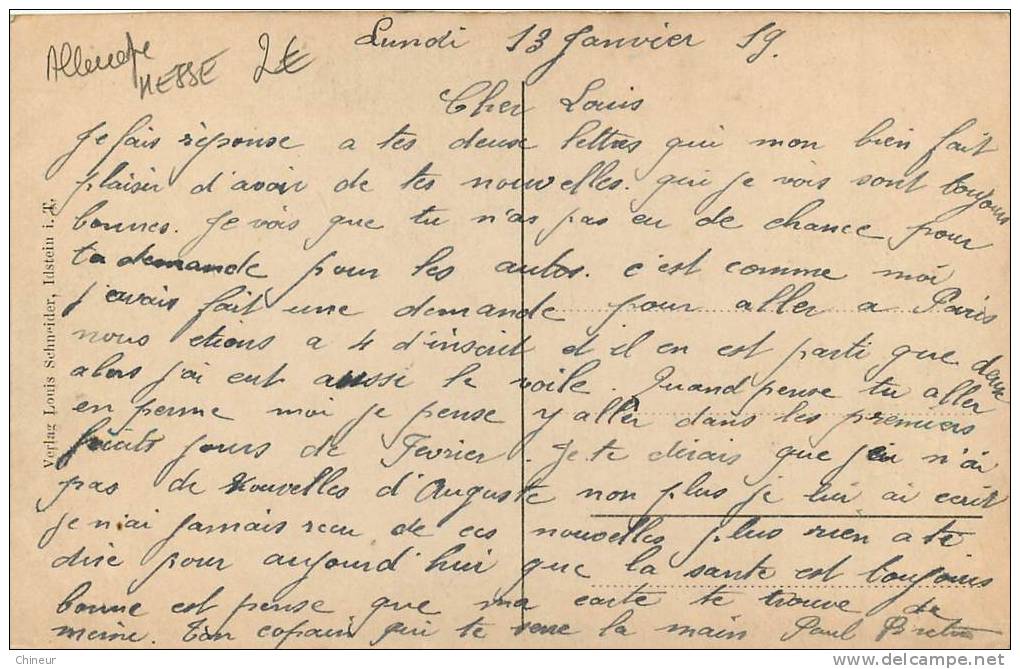 Allemagne
HESSE 2€
Lundi 13 Janvier 19.
Cher Louis
Je fais réponse a tes deux lettres qui mon bien fait
plaisir d'avoir de tes nouvelles. qui je vois sont toujours
bonnes. Je vois que tu n'as pas eu de chance pour
ta demande pour les autos. c'est comme moi
j'avais fait une demande pour aller a Paris
nous etions a 4 d'inscrit et il en est parti que deux
alors j'ai eut aussi le voile. Quand pense tu aller
en perme moi je pense y aller dans les premiers
huits jours de Fevrier. Je te dirais que j'en n'ai
pas de nouvelles d'Auguste non plus je lui ai ecrit
je n'ai jamais recu de ces nouvelles plus rien a te
dire pour aujourd'hui que la sante est toujours
bonne est pense que ma carte te trouve de
meme. Ton copain qui te serre la main Paul
Verlag Louis Schneider, Idstein i. T.
Chineur
delcampe.net